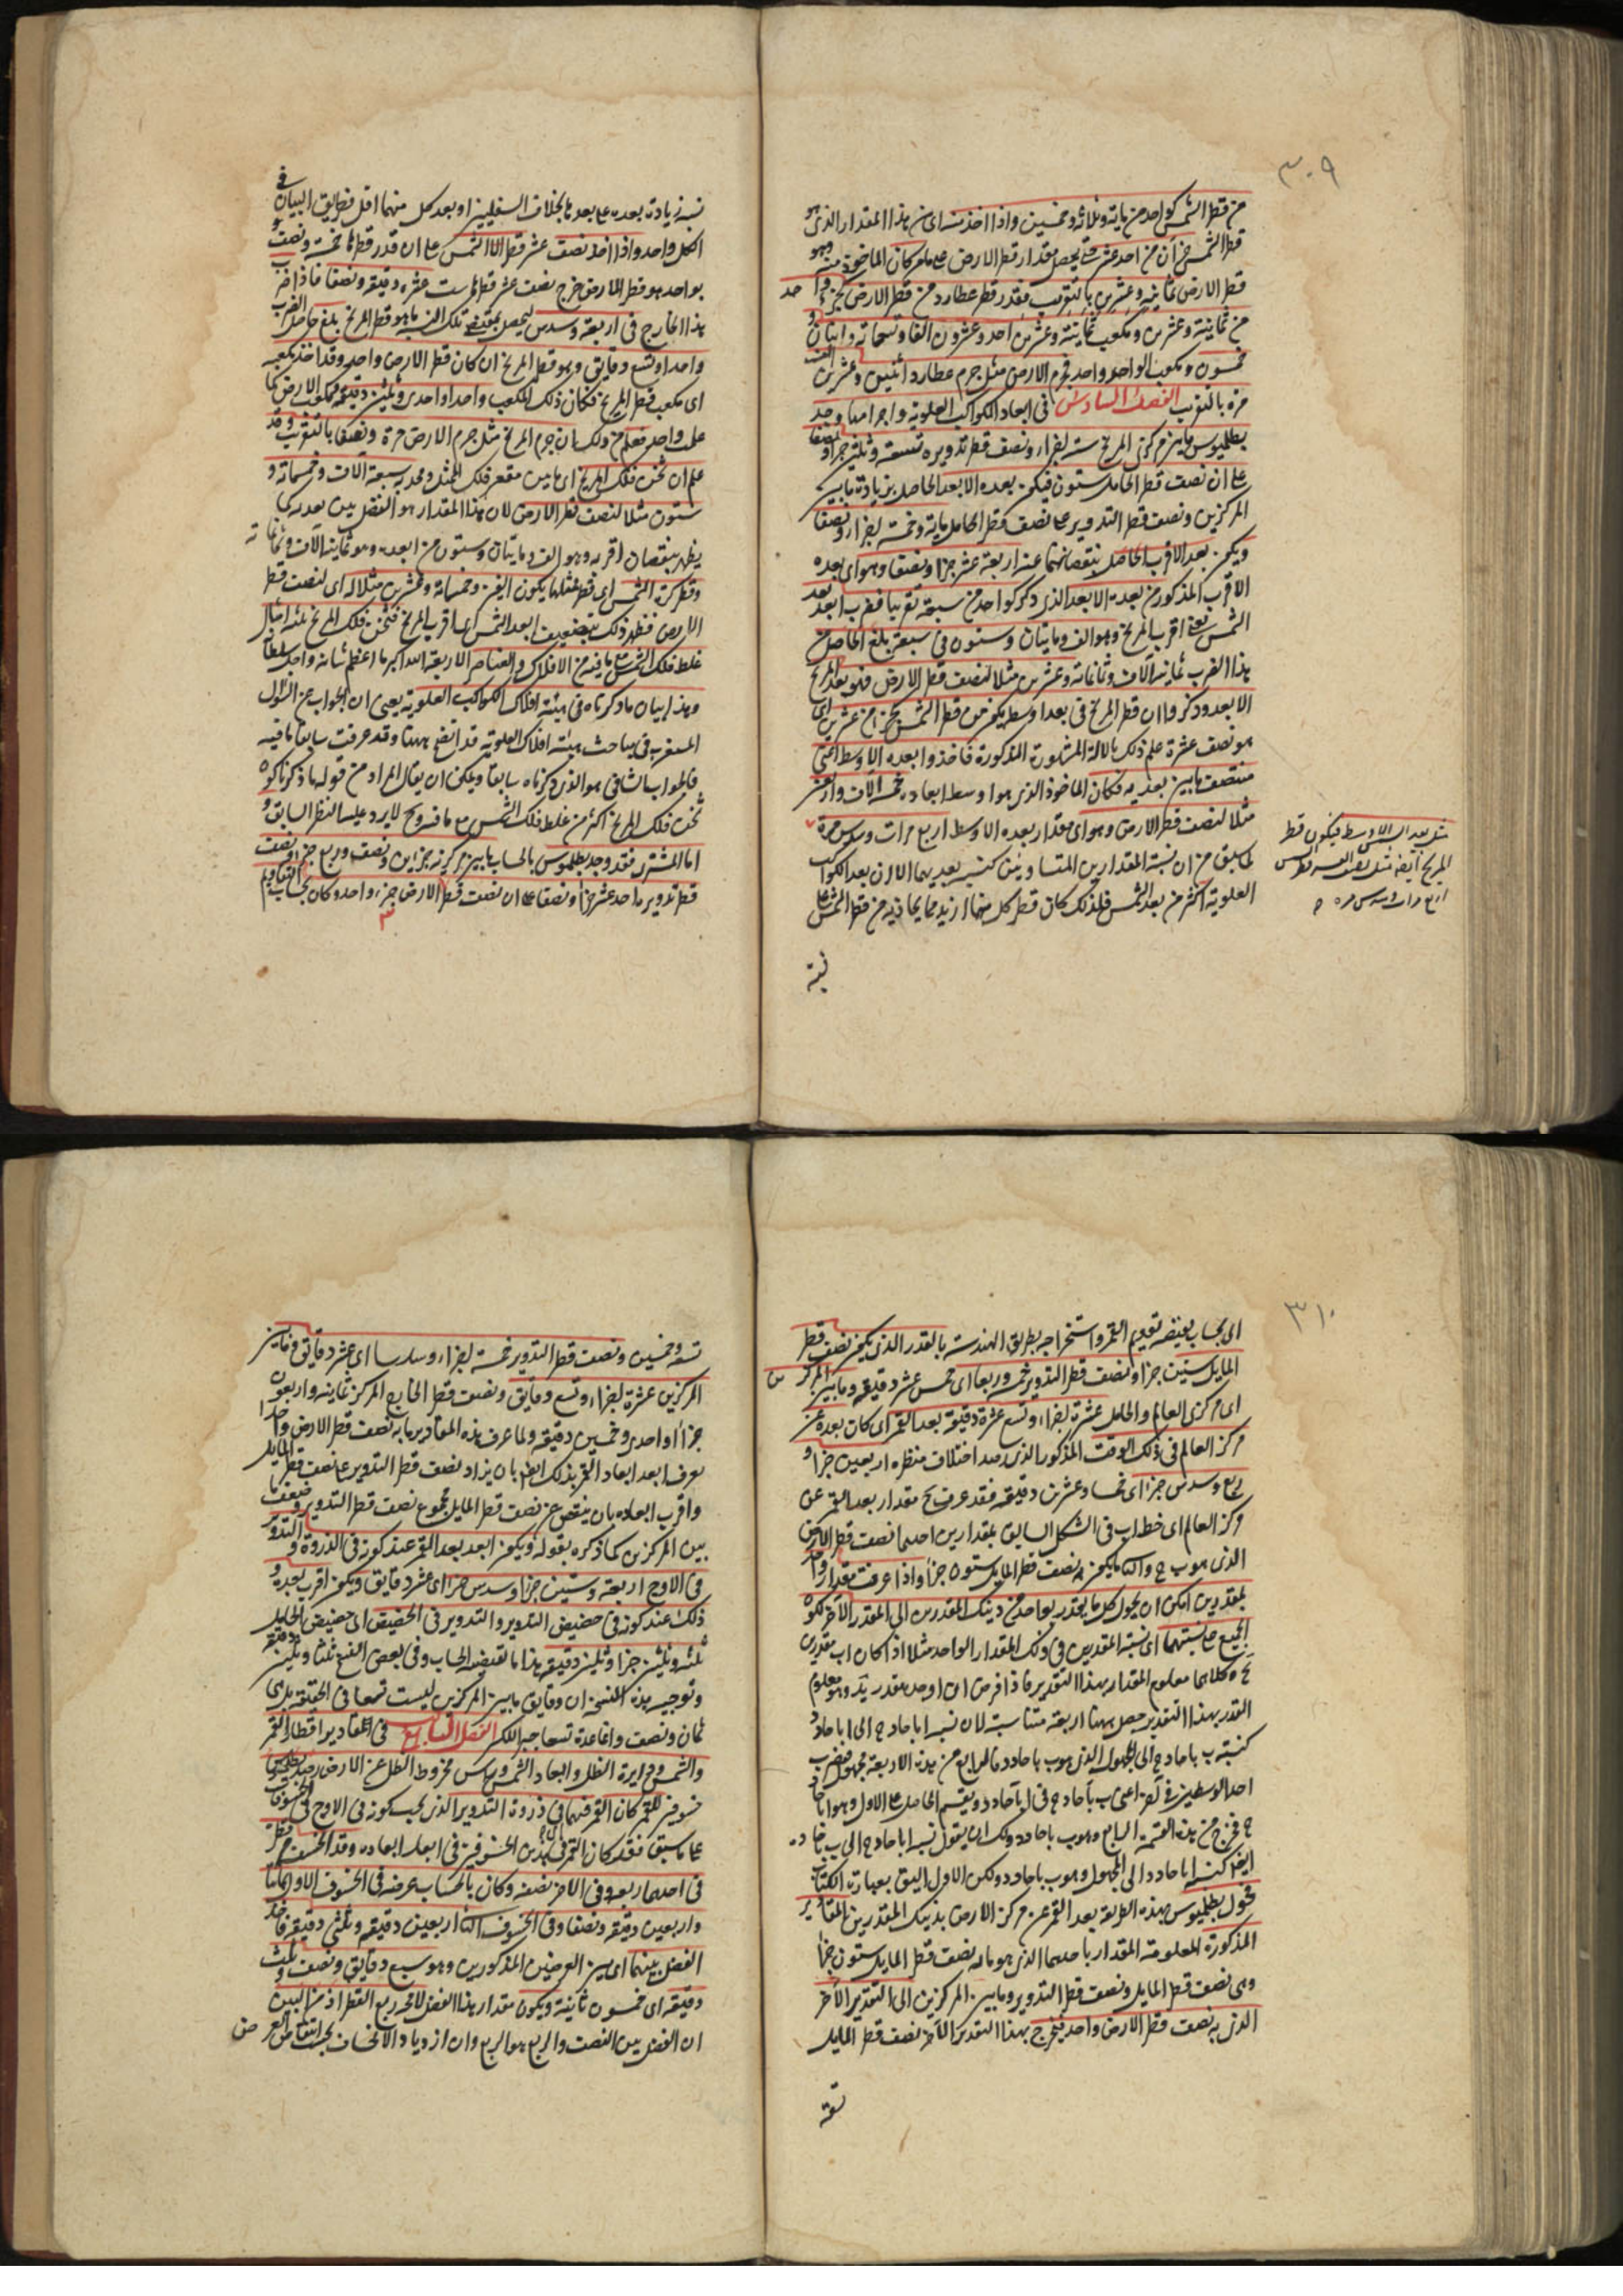 ٣٠٩
من قطر الشمس كواحد من مائة وثلاثة وخمسين واذا اخذت الى هذا المقدار الذي هو
قطر الشمس جزآن من احد عشر حتى يحصل مقدار قطر الارض على ما مر كان الماخوذ منه وهو
قطر الارض ثمانية وعشرين بالتقريب فقدر قطر عطارد من قطر الارض كجزء واحد
من ثمانية وعشرين ومكعب ثمانية وعشرين احد وعشرون الفا وتسعمائة واثنان و
خمسون ومكعب الواحد واحد فجرم الارض مثل جرم عطارد اثنين وعشرين الف
مرة بالتقريب الفصل السادس في ابعاد الكواكب العلوية واجرامها وجد
بطلميوس ما بين مركزي المريخ ستة اجزاء ونصف قطر تدويره تسعة وثلثين جزءا ونصفا
على ان نصف قطر الحامل ستون فيكون بعده الابعد الحاصل بزيادة ما بين
المركزين ونصف قطر التدوير على نصف قطر الحامل مائة وخمسة اجزاء ونصفا
ويكون بعد الاقرب الحاصل بنقصانهما عنه اربعة عشر جزءا ونصفا وهو اي بعده
الاقرب المذكور من بعده الابعد الذي ذكر كواحد من سبعة تقريبا فضرب ابعد بعد
الشمس يعني اقرب المريخ وهو الف ومايتان وستون في سبعة بلغ الحاصل من
هذا الضرب ثمانية آلاف وثمانمائة وعشرين مثلا لنصف قطر الارض فهو بعد المريخ
الابعد وذكروا ان قطر المريخ في بعد اوسط يكون من قطر الشمس كجزء من عشرين اي
هو نصف عشرة علم ذلك بالالة المشهورة المذكورة فاخذوا بعده الاوسط اعني
منتصف ما بين بعديه فكان الماخوذ الذي هو اوسط ابعاده خمسة آلاف واربعين
مثلا لنصف قطر الارض وهو اي مقدار بعده الاوسط اربع مرات وسدس مرة
لما سبق من ان نسبة المقدارين المتساويين كنسبة بعديهما الا ان بعد الكواكب
العلوية اكثر من بعد الشمس فلذلك كان قطر كل منها ازيد مما يحاذيه من قطر الشمس على
نسبة
مثل بعد الشمس الاوسط فيكون قطر
المريخ ايضا مثل نصف
اربع مرات وسدس مرة
نسبة زيادة بعده على بعدها بخلاف السفليين اذ بعد كل منهما اقل فطريق البيان في
الكل واحد واذا اخذ نصف عشر قطر الشمس على ان قدر قطرها خمسة ونصف
بواحد هو قطر الارض خرج نصف عشر قطرها ست عشرة دقيقة ونصفا فاذا ضرب
هذا الخارج في اربعة وسدس ليحصل بمقتضى تلك النسبة ما هو قطر المريخ بلغ حاصل الضرب
واحدا وتسع دقايق وهو قطر المريخ ان كان قطر الارض واحد وقد اخذ مكعبه
اي مكعب قطر المريخ فكان ذلك المكعب واحدا واحدى وثلثين دقيقة ومكعب الارض كما
علمت واحد فعلم من ذلك ان جرم المريخ مثل جرم الارض مرة ونصفا بالتقريب وقد
علم ان ثخن فلك المريخ اي ما بين مقعر فلك الممثل ومحدبه سبعة آلاف وخمسمائة و
ستون مثلا لنصف قطر الارض لان هذا المقدار هو الفضل بين بعديه كما
يظهر بنقصان اقربه وهو الف ومايتان وستون من ابعده وهو ثمانية آلاف وثمانمائة
وقطر كرة الشمس اي قطر ممثلها يكون الفين وخمسمائة وعشرين مثلا له اي لنصف قطر
الارض فظهر ذلك بتضعيف ابعد الشمس اي اقرب المريخ فثخن فلك المريخ ثلثة امثال
غلظ فلك الشمس مع ما فيه من الافلاك والعناصر الاربعة الله اكبر ما اعظم شانه واجل سلطانه
وهذا بيان ما ذكرناه في هيئة افلاك الكواكب العلوية يعني ان الجواب عن السؤال
المستغرب في مباحث هيئة افلاك العلوية قد اتضح ههنا وقد عرفت سابقا ما فيه
فالجواب الشافي هو الذي ذكرناه سابقا ويمكن ان يقال المراد من قوله ما ذكرنا كون
ثخن فلك المريخ اكثر من غلظ فلك الشمس مع ما فيه وح لا يرد عليه النظر السابق و
اما المشتري فقد وجد بطلميوس بالحساب ما بين مركزيه جزئين ونصف وربع جزء ونصف
قطر تدويره احد عشر جزءا ونصفا على ان نصف قطر الارض جزء واحد وكان بحساب التقاويم
٣
٣١٠
اي بحساب يقتضيه تقويم القمر واستخراجه بطريق الهندسة بالقدر الذي يكون نصف قطر
المايل ستين جزءا ونصف قطر التدوير خمسة وربعا اي خمس عشر دقيقة وما بين المركزين
اي مركزي العالم والحامل عشرة اجزاء وتسع عشرة دقيقة بعد القمر اي كان بعده عن
مركز العالم في ذلك الوقت المذكور الذي رصد اختلاف منظره اربعين جزءا و
ربع وسدس جزء اي خمسا وعشرين دقيقة فقد عرف ح مقدار بعد القمر عن
مركز العالم اي خط اب في الشكل السابق بمقدارين احدهما نصف قطر الارض
الذي هو ب ح والثاني ما يكون به نصف قطر المايل ستون جزءا واذا عرفت مقدار واحد
بمقدرين امكن ان يحول كل ما يتقدر بواحد من ذينك المقدرين الى المقدر الآخر لكون
الجميع على نسبتهما اي نسبة المقدرين في ذلك المقدار الواحد مثلا اذا كان اب بقدري
ح ه كلاهما معلوم المقدار بهذا التقدير فاذا فرض اي اوحد بقدر ي د وهو معلوم
القدر بهذا التقدير حصل ههنا اربعة متناسبة لان نسبة ا با حاد ح الى ا با حاد د
كنسبة ب با حاد ح الى المجهول الذي هو ب با حاد د فالرابع من هذه الاربعة مجهول فنضرب
احد الوسطين في الآخر اعني ب با حاد ح في ا با حاد د ويقسم الحاصل على الاول وهو ا با حاد
ح فخرج من هذه القسمة الرابع وهو ب با حاد د ولك ان يقول نسبة ا با حاد ح الى ب با حاد د
ايضا كنسبة ا با حاد د الى المجهول وهو ب با حاد د ولكن الاول اليق بعبارة الكتاب
فحول بطلميوس بهذه الطريقة بعد القمر عن مركز الارض بذينك المقدرين المقادير
المذكورة المعلومة المقدار باحدهما الذي هو ما له نصف قطر المايل ستون جزءا
وهي نصف قطر المايل ونصف قطر التدوير وما بين المركزين الى التقدير الآخر
الذي به نصف قطر الارض واحد فخرج بهذا التقدير الآخر نصف قطر المايل
تسعة
تسعة وخمسين ونصف قطر التدوير خمسة اجزاء وسدسا اي عشر دقايق وما بين
المركزين عشرة اجزاء وتسع دقايق ونصف قطر الخارج المركز ثمانية واربعون
جزءا واحدى وخمسين دقيقة ولما عرف هذه المقادير بما به نصف قطر الارض واحد
يعرف ابعد ابعاد القمر بذلك ايضا بان يزاد نصف قطر التدوير على نصف قطر المايل
واقرب ابعاده بان ينقص عن نصف قطر المايل مجموع نصف قطر التدوير وضعف ما
بين المركزين كما ذكره بقوله ويكون ابعد بعد القمر عند كونه في الذروة والتدوير
في الاوج اربعة وستين جزءا وسدس جزء اي عشر دقايق ويكون اقرب بعده و
ذلك عند كونه في حضيض التدوير والتدوير في الحضيض اي حضيض الحامل
ثلثة وثلثين جزءا وثلثين دقيقة هذا ما يقتضيه الحساب وفي بعض النسخ ثلثا وثلثين دقيقة
وتوجيه هذه النسخة ان دقايق ما بين المركزين ليست تسعا في الحقيقة بل هي
ثمان ونصف وانما عده تسعا جبرا للكسر الفصل السابع في مقادير اقطار القمر
والشمس ودايرة الظل وابعاد الشمس وراس مخروط الظل عن الارض رصد بطلميوس
خسوفين للقمر كان القمر فيهما في ذروة التدوير الذي يجب كونه في الاوج في الخسوفات
على ما سبق فقد كان القمر في هذين الخسوفين في ابعد ابعاده وقد انخسف من قطره
في احدهما ربعه وفي الآخر نصفه وكان بالحساب عرضه في الخسوف الاول ثمانيا
واربعين دقيقة ونصفا وفي الخسوف الثاني اربعين دقيقة وثلثي دقيقة فاخذ
الفضل بينهما اي بين العرضين المذكورين وهو سبع دقايق ونصف وثلث
دقيقة اي خمسون ثانية ويكون مقدار هذا الفضل لا محة ربع القطر اذ من البين
ان الفضل بين النصف والربع هو الربع وان ازدياد الانخساف بحسب انتقاص العرض